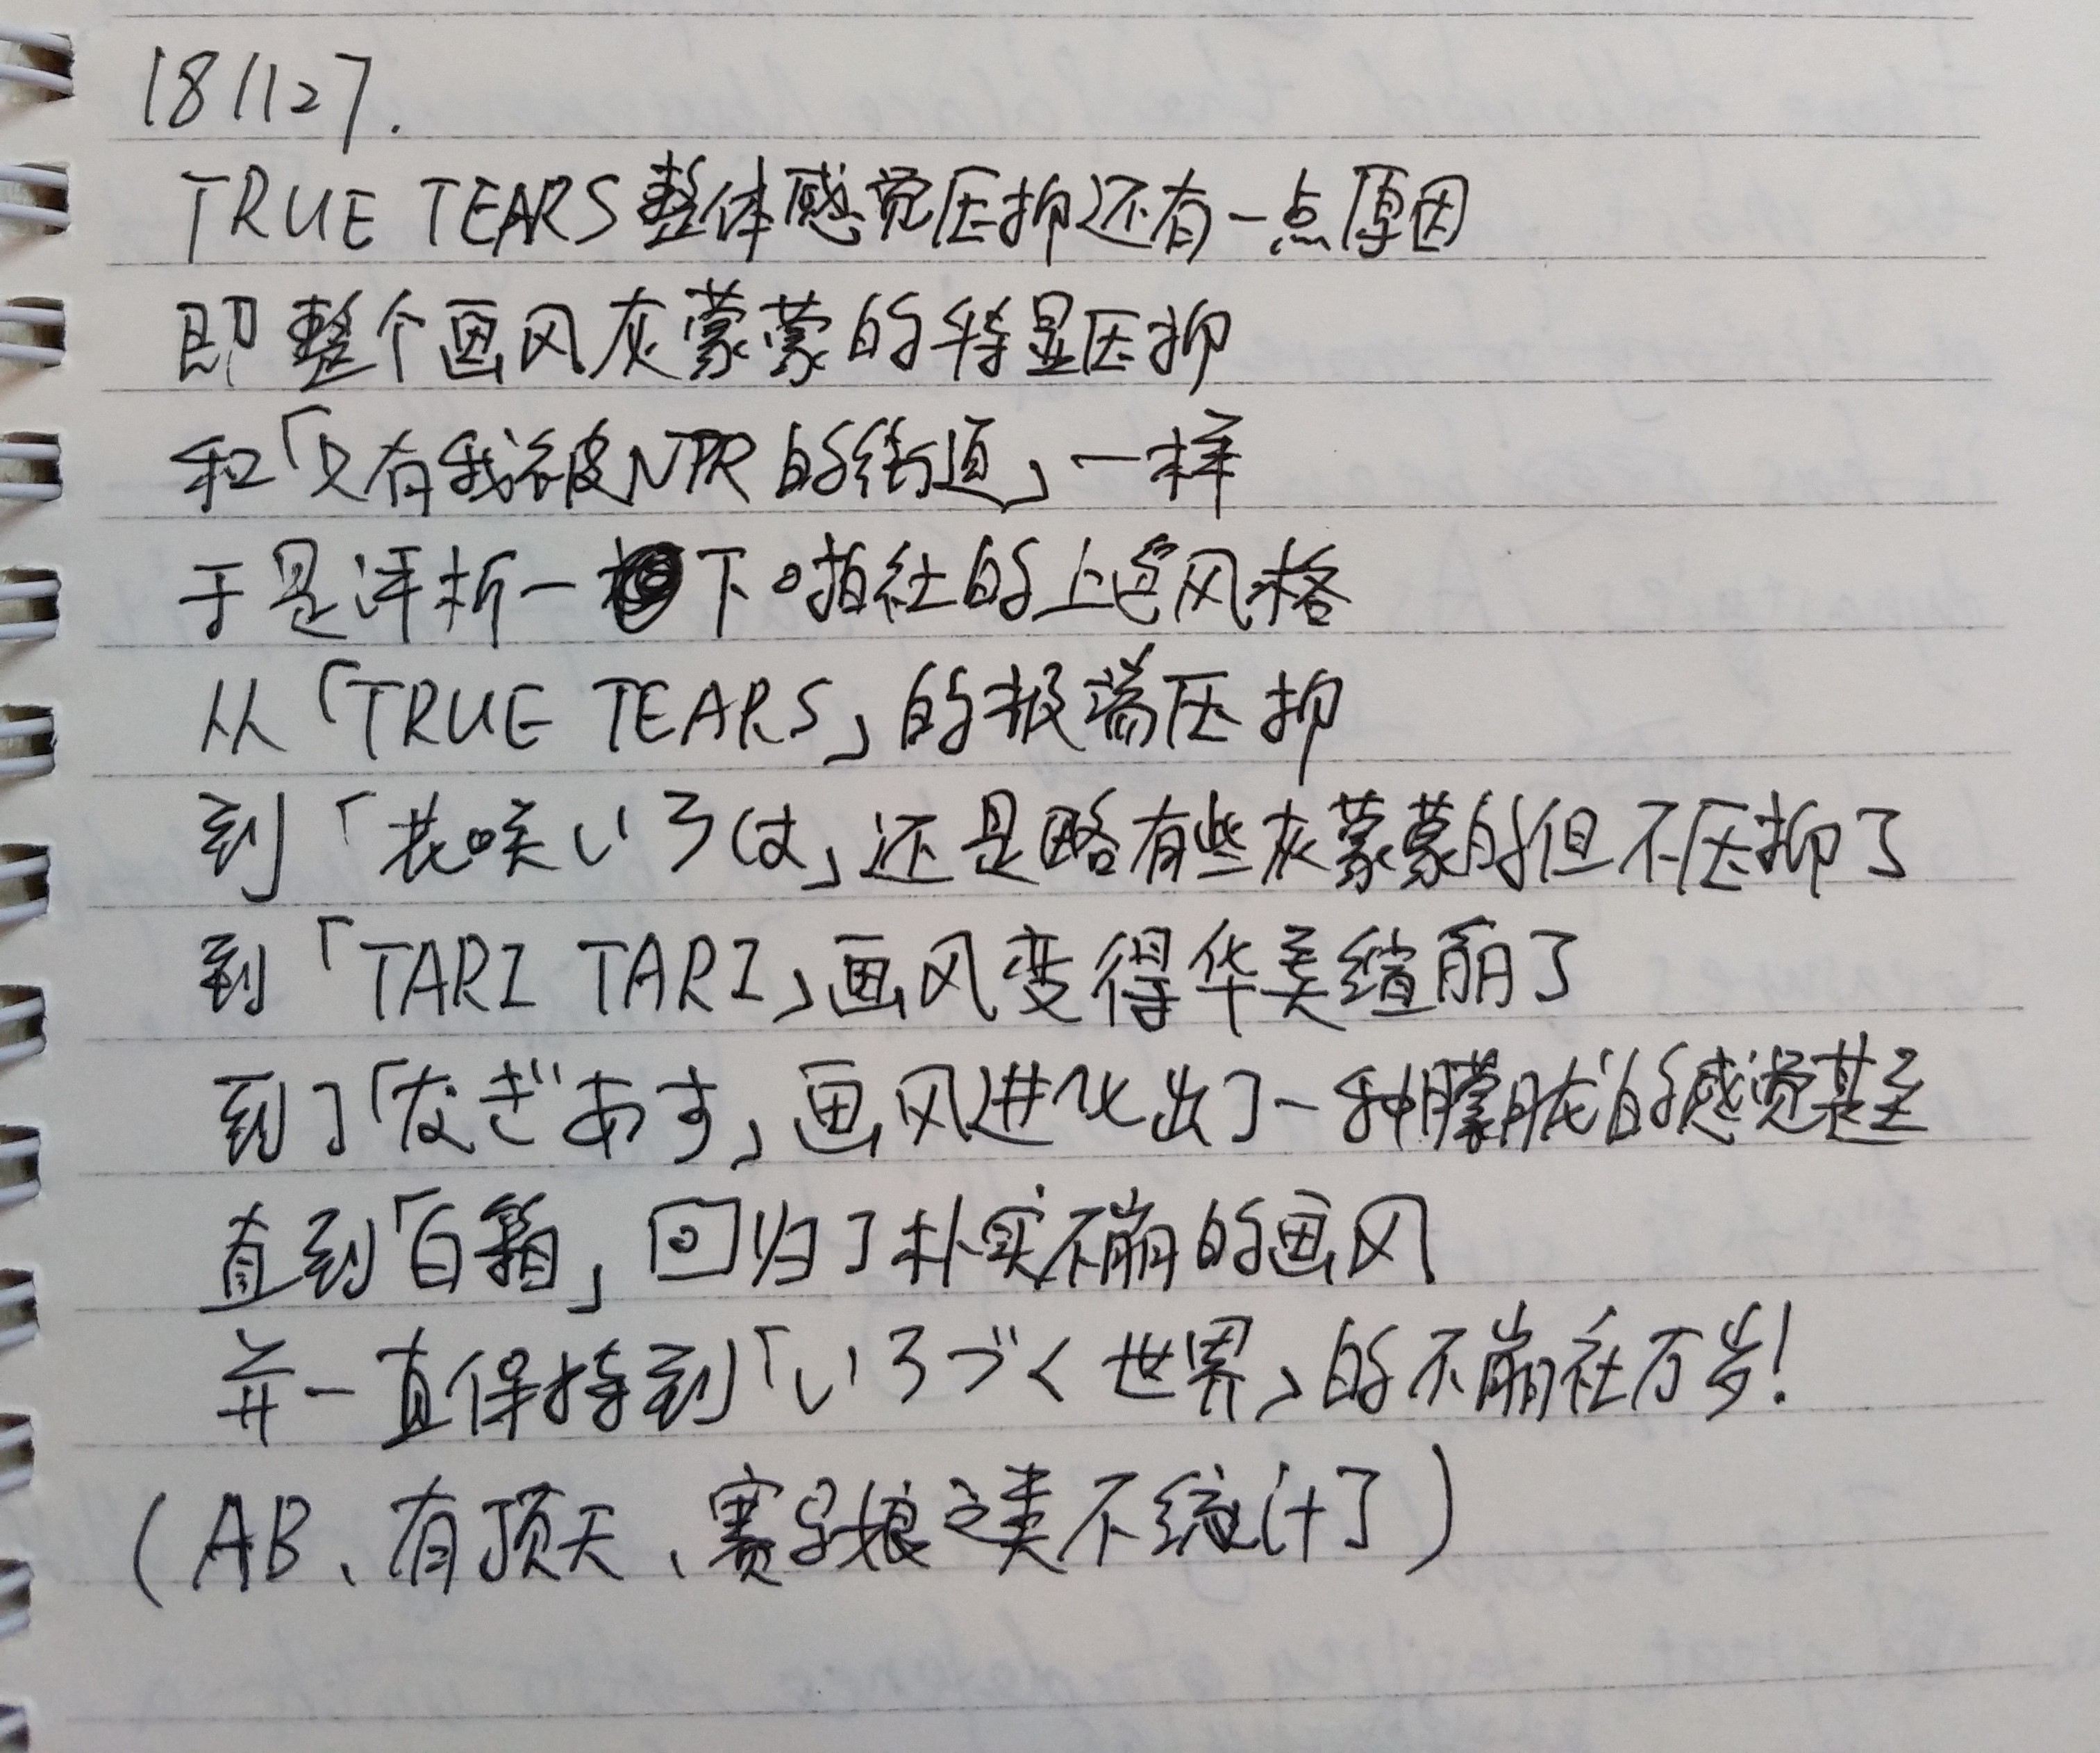 181127.
TRUE TEARS整体感觉压抑还有一点原因
即整个画风灰蒙蒙的特显压抑
和「只有我被NTR的街道」一样
于是评析一下啪社的上色风格
从「TRUE TEARS」的极端压抑
到「花咲いろは」还是略有些灰蒙蒙的但不压抑了
到「TARI TARI」画风变得华美绚丽了
到了「なぎあす」画风进化出了一种朦胧的感觉甚至
直到「白箱」回归了朴实不崩的画风
并一直保持到「いろづく世界」的不崩社万岁!
(AB、有顶天、赛马娘之类不统计了)